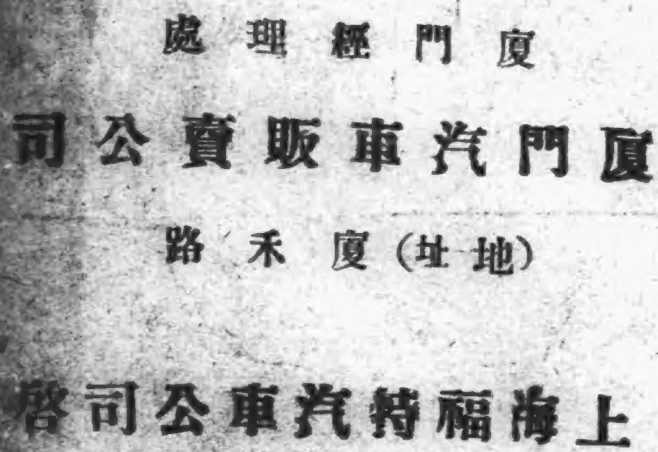 廈門經理處
廈門汽車販賣公司
(地址)廈禾路
上海福特汽車公司啓